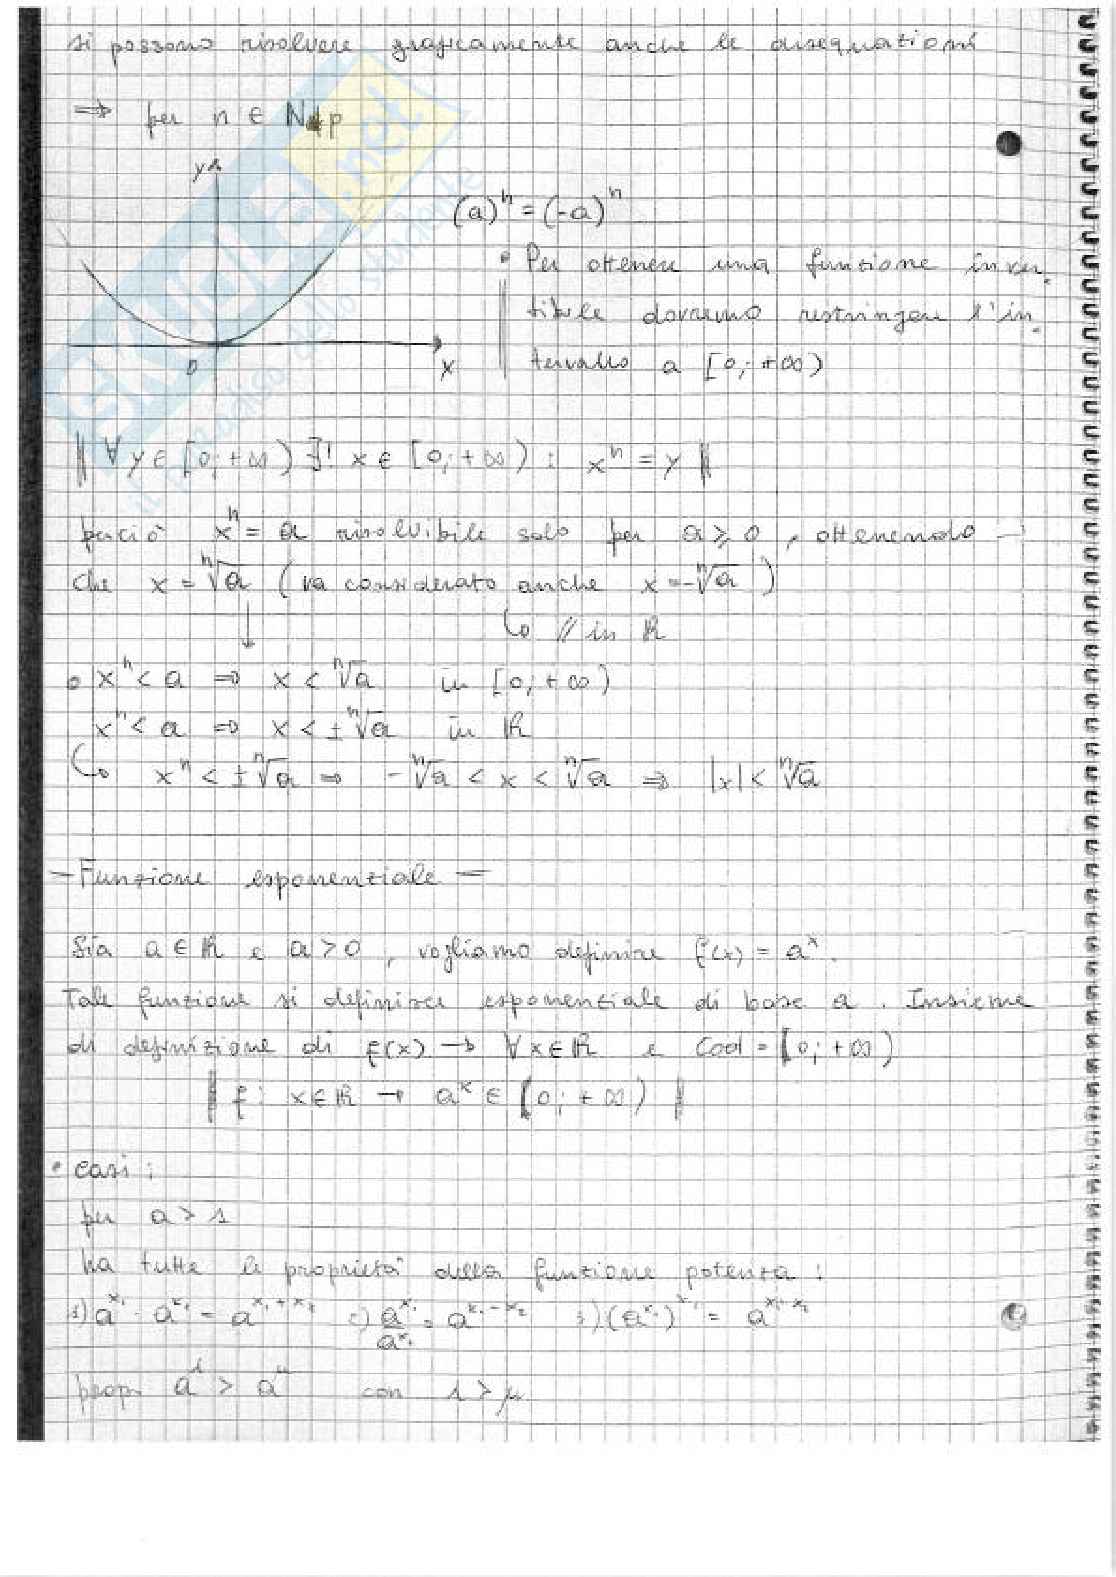 si possono risolvere graficamente anche le disequazioni
⇒ per n ∈ N p
y
(a)ⁿ = (-a)ⁿ
• Per ottenere una funzione inver-
tibile dovremo restringere l'in-
tervallo a [0; +∞)
0
x
‖ ∀ y ∈ [0; +∞) ∃! x ∈ [0; +∞) : xⁿ = y ‖
perciò xⁿ = a risolvibile solo per a ≥ 0, ottenendo
che x = ⁿ√a (va considerato anche x = -ⁿ√a)
↓
↳ // in ℝ
• xⁿ < a ⇒ x < ⁿ√a in [0; +∞)
xⁿ < a ⇒ x < ±ⁿ√a in ℝ
↳ xⁿ < ±ⁿ√a ⇒ -ⁿ√a < x < ⁿ√a ⇒ |x| < ⁿ√a
- Funzione esponenziale -
Sia a ∈ ℝ e a > 0, vogliamo definire f(x) = aˣ.
Tale funzione si definisce esponenziale di base a. Insieme
di definizione di f(x) → ∀ x ∈ ℝ e Cod = (0; +∞)
‖ f: x ∈ ℝ → aˣ ∈ (0; +∞) ‖
• casi:
per a > 1
ha tutte le proprietà della funzione potenza:
1) a^x₁ · a^x₂ = a^(x₁+x₂) 2) a^x₁/a^x₂ = a^(x₁-x₂) 3) (a^x₁)^x₂ = a^(x₁·x₂)
prop. a > a con > μ
SKUOLA.net
il paradiso dello studente